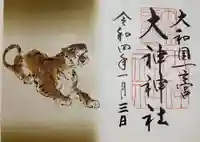 大和国一之宮
大神神社
令和四年一月三日